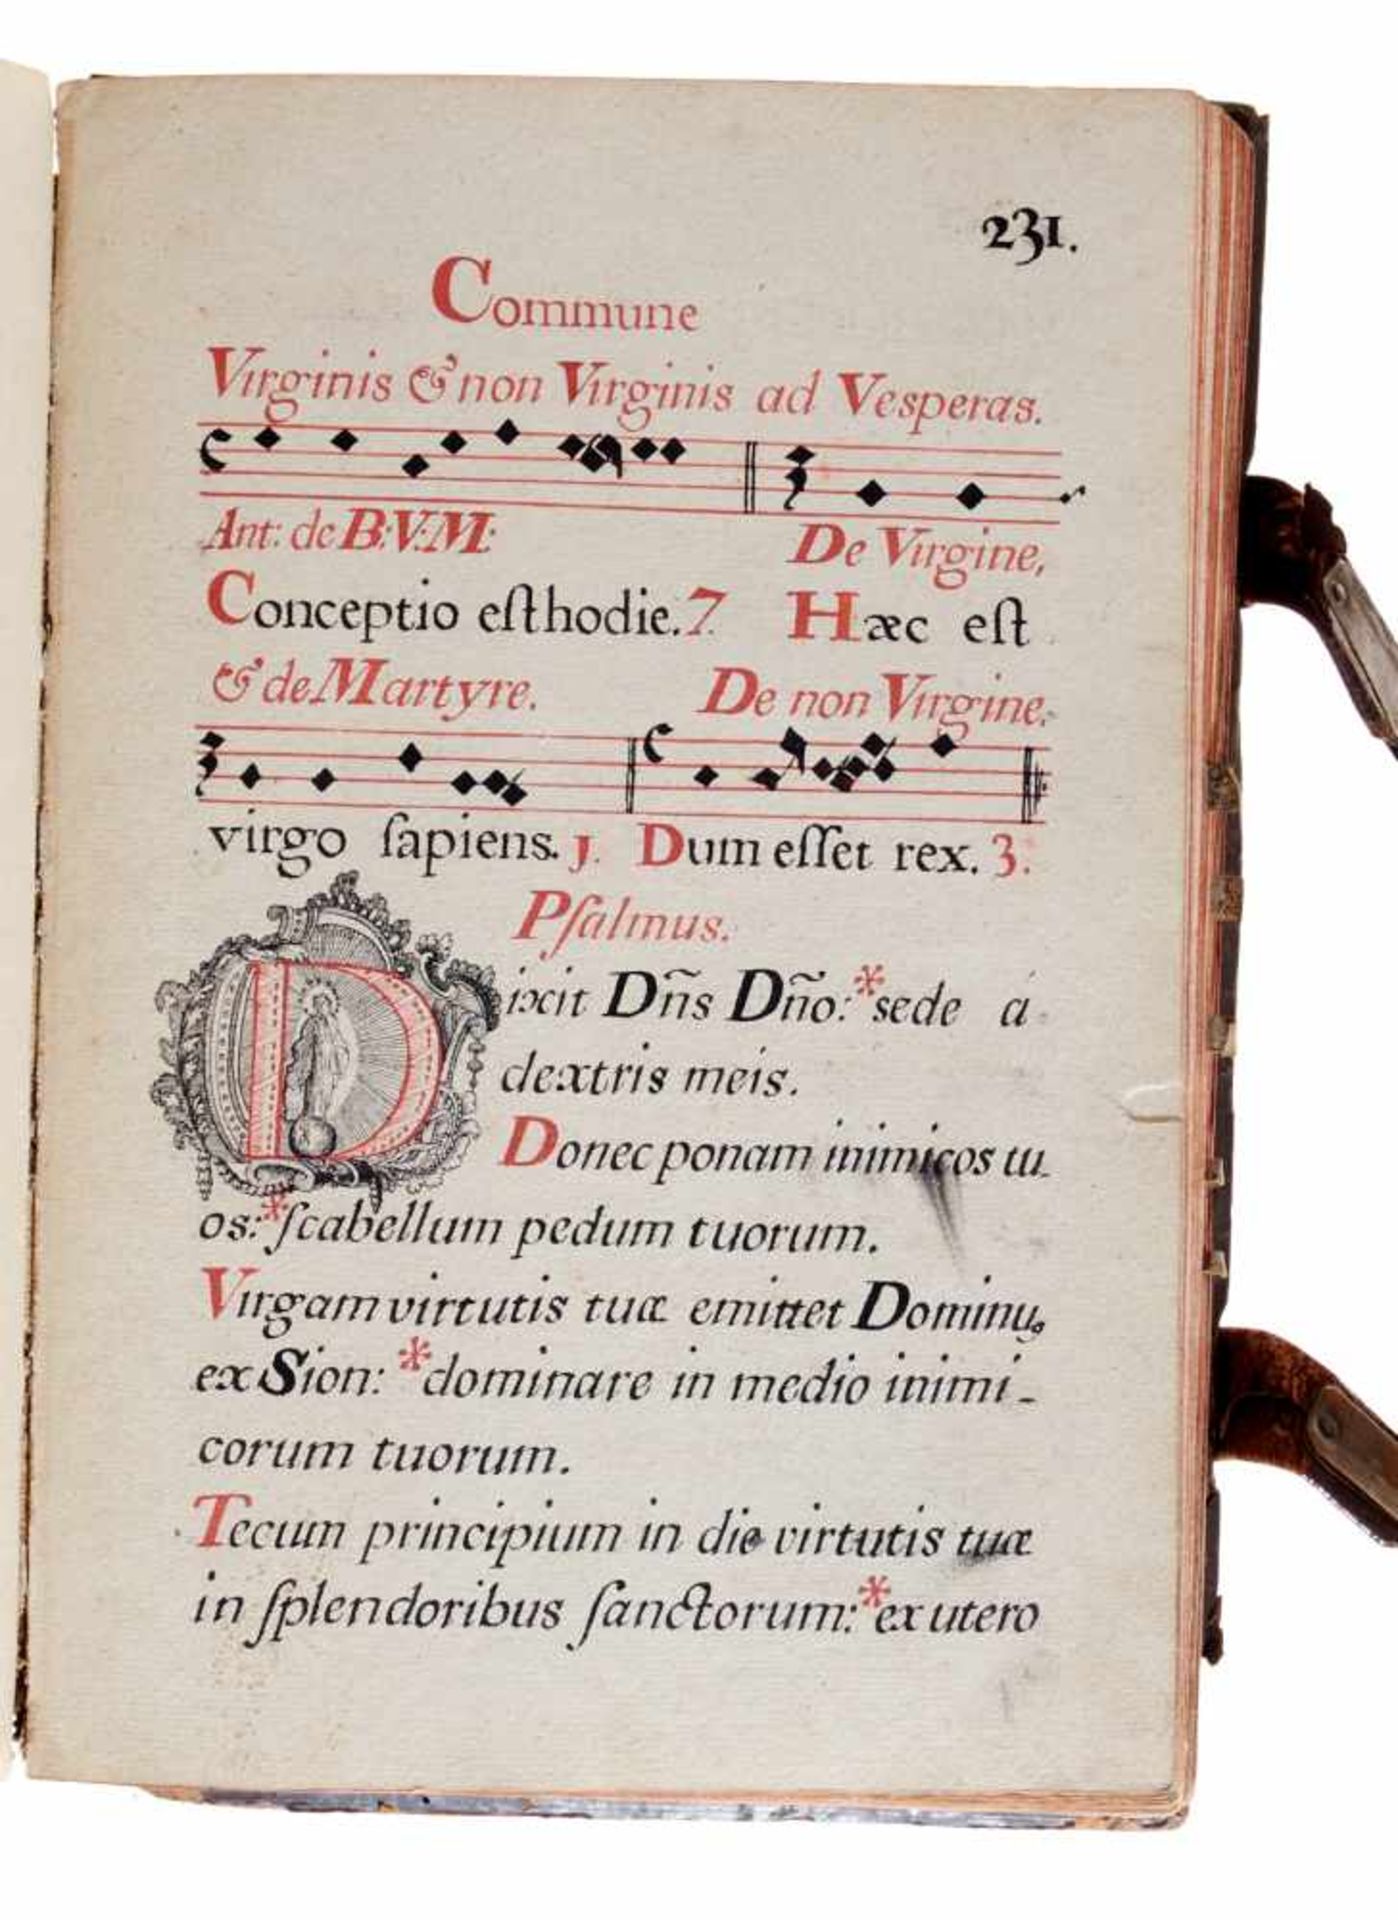 231.
Commune
Virginis & non Virginis ad Vesperas.
Ant: de B:V:M: De Virgine,
Conceptio eſt hodie. 7. Hæc eſt
& de Martyre. De non Virgine.
virgo ſapiens. j. Dum eſſet rex. 3.
Pſalmus.
Dixit Dñs Dño: * sede á
dextris meis.
Donec ponam inimicos tu-
os: * ſcabellum pedum tuorum.
Virgam virtutis tuæ emittet Dominus
ex Sion: * dominare in medio inimi-
corum tuorum.
Tecum principium in die virtutis tuæ
in ſplendoribus ſanctorum: * ex utero